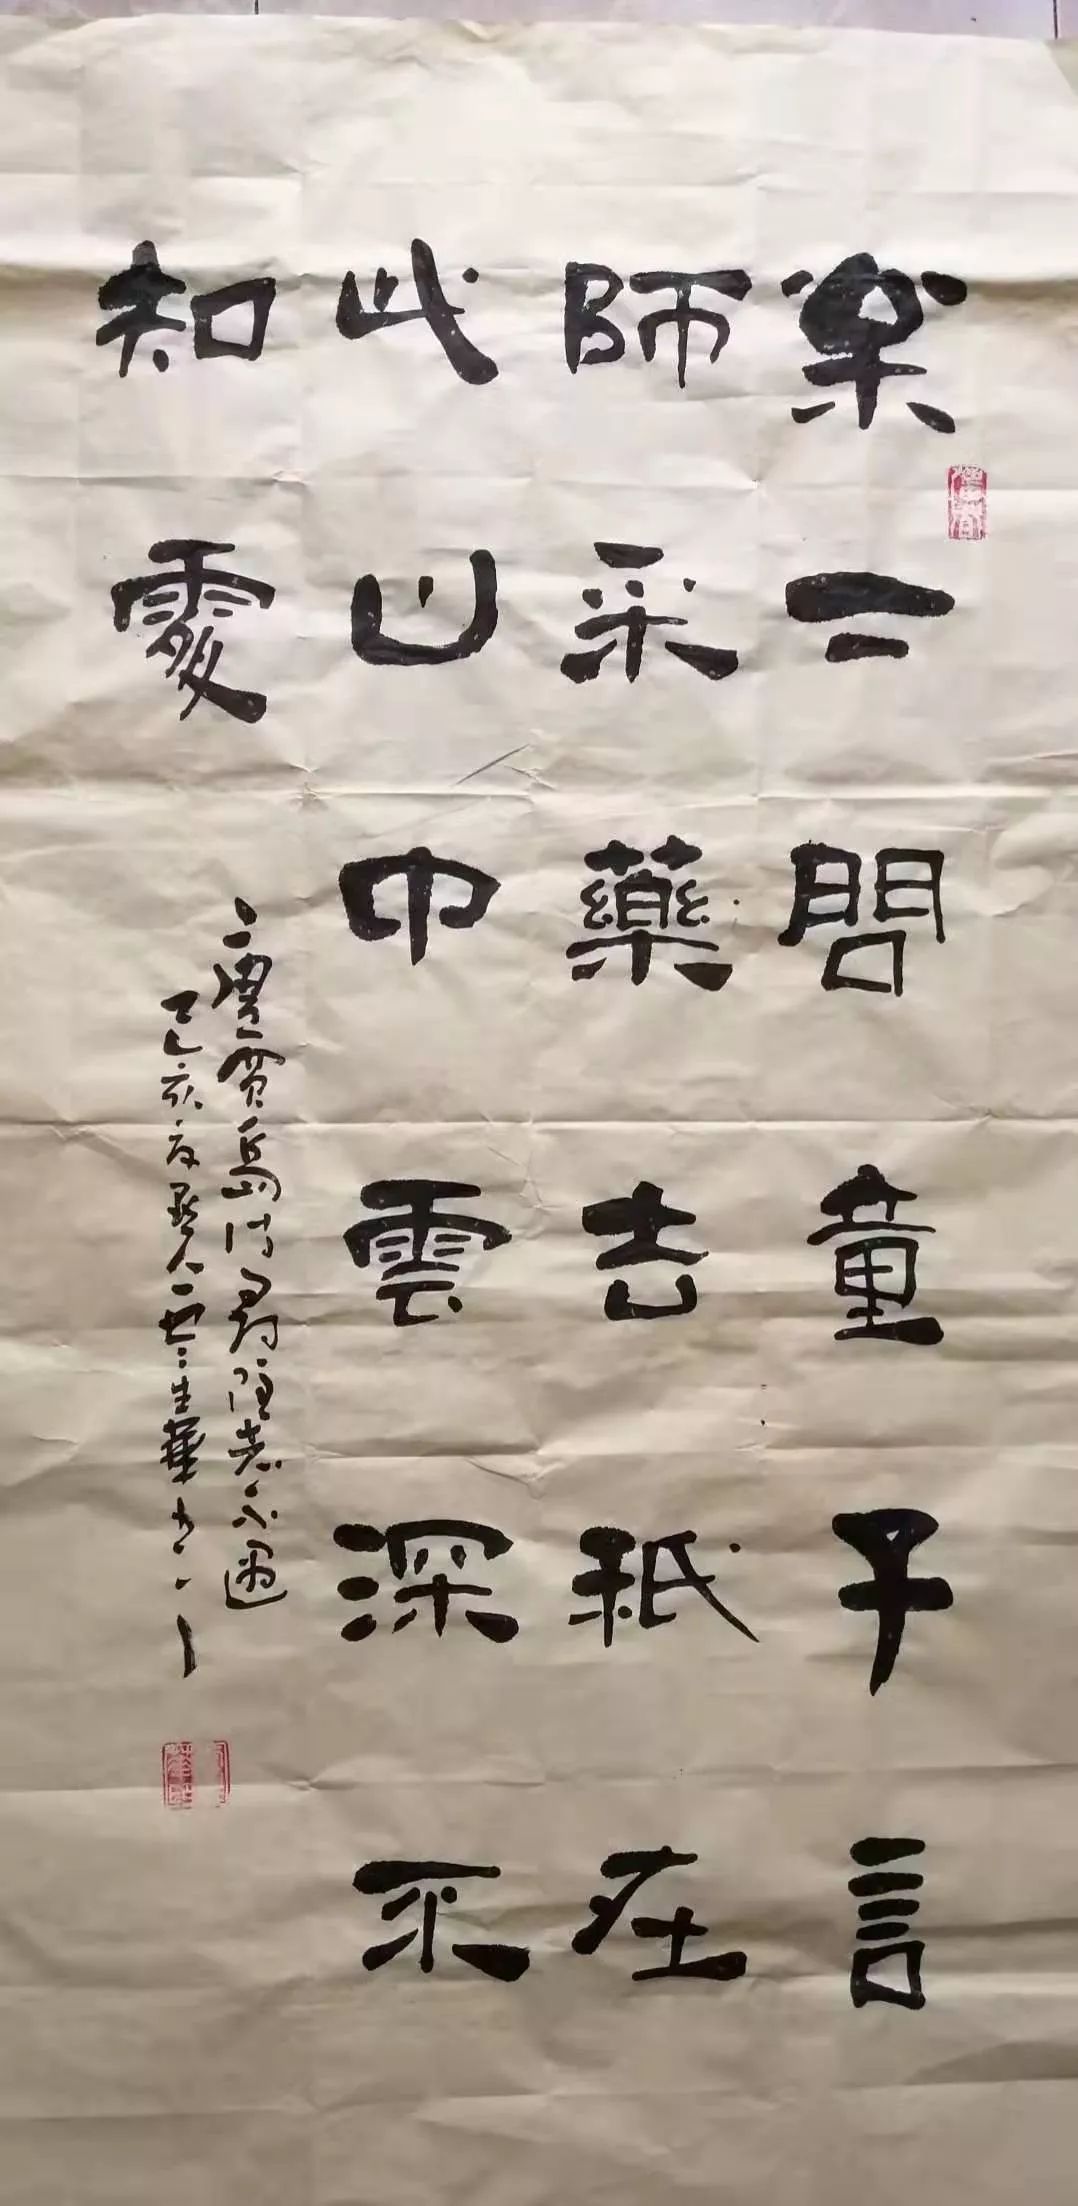 松下問童子言
師采藥去秖在
此山中雲深不
知處
唐賈島詩尋隱者不遇
己亥夏 生華書